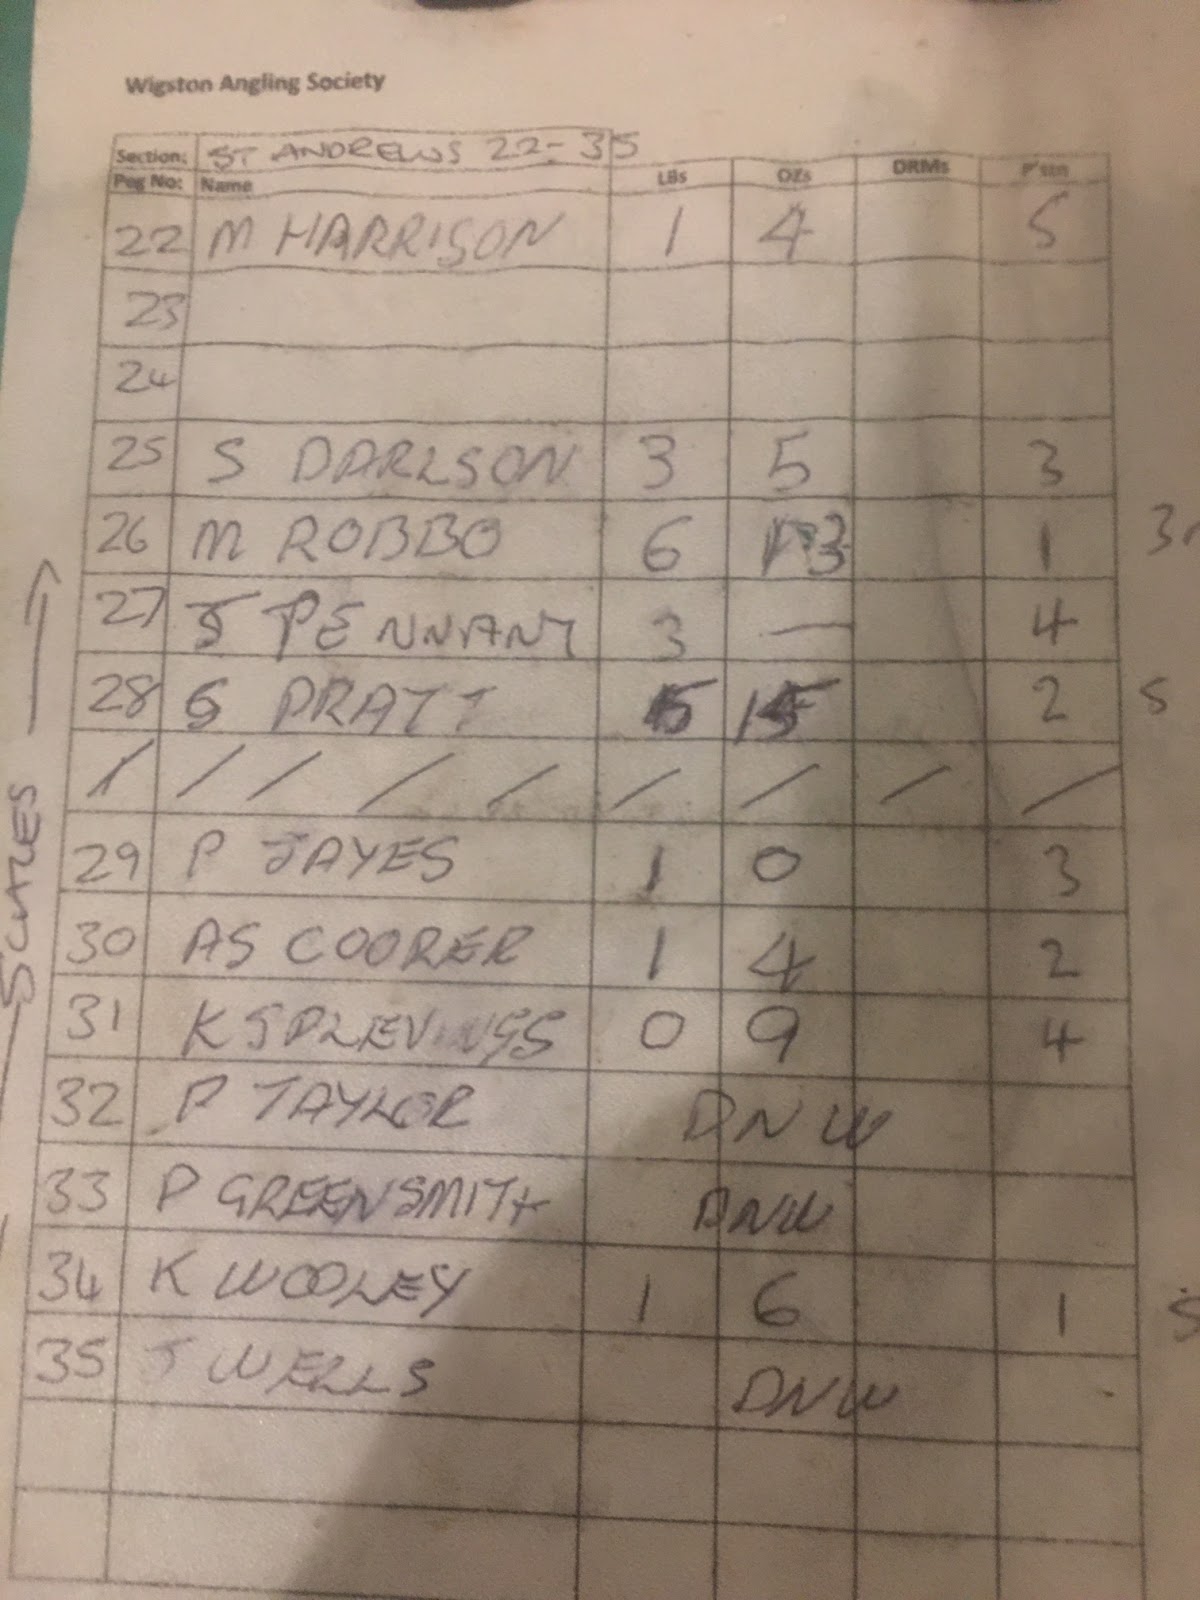 Wigston Angling Society
Section: ST ANDREWS 22-35
Peg No: Name LBs OZs DRMs P'stn
22 M HARRISON 1 4 5
23
24
25 S DARLSON 3 5 3
26 M ROBBO 6 13 1
27 J PENNANT 3 — 4
28 G PRATT 5 15 2
/ / / / / / / / /
29 P JAYES 1 0 3
30 AS COORER 1 4 2
31 K 0 9 4
32 P TAYLOR DNW
33 P GREENSMITH DNW
34 K WOOLEY 1 6 1
35 J WELLS DNW